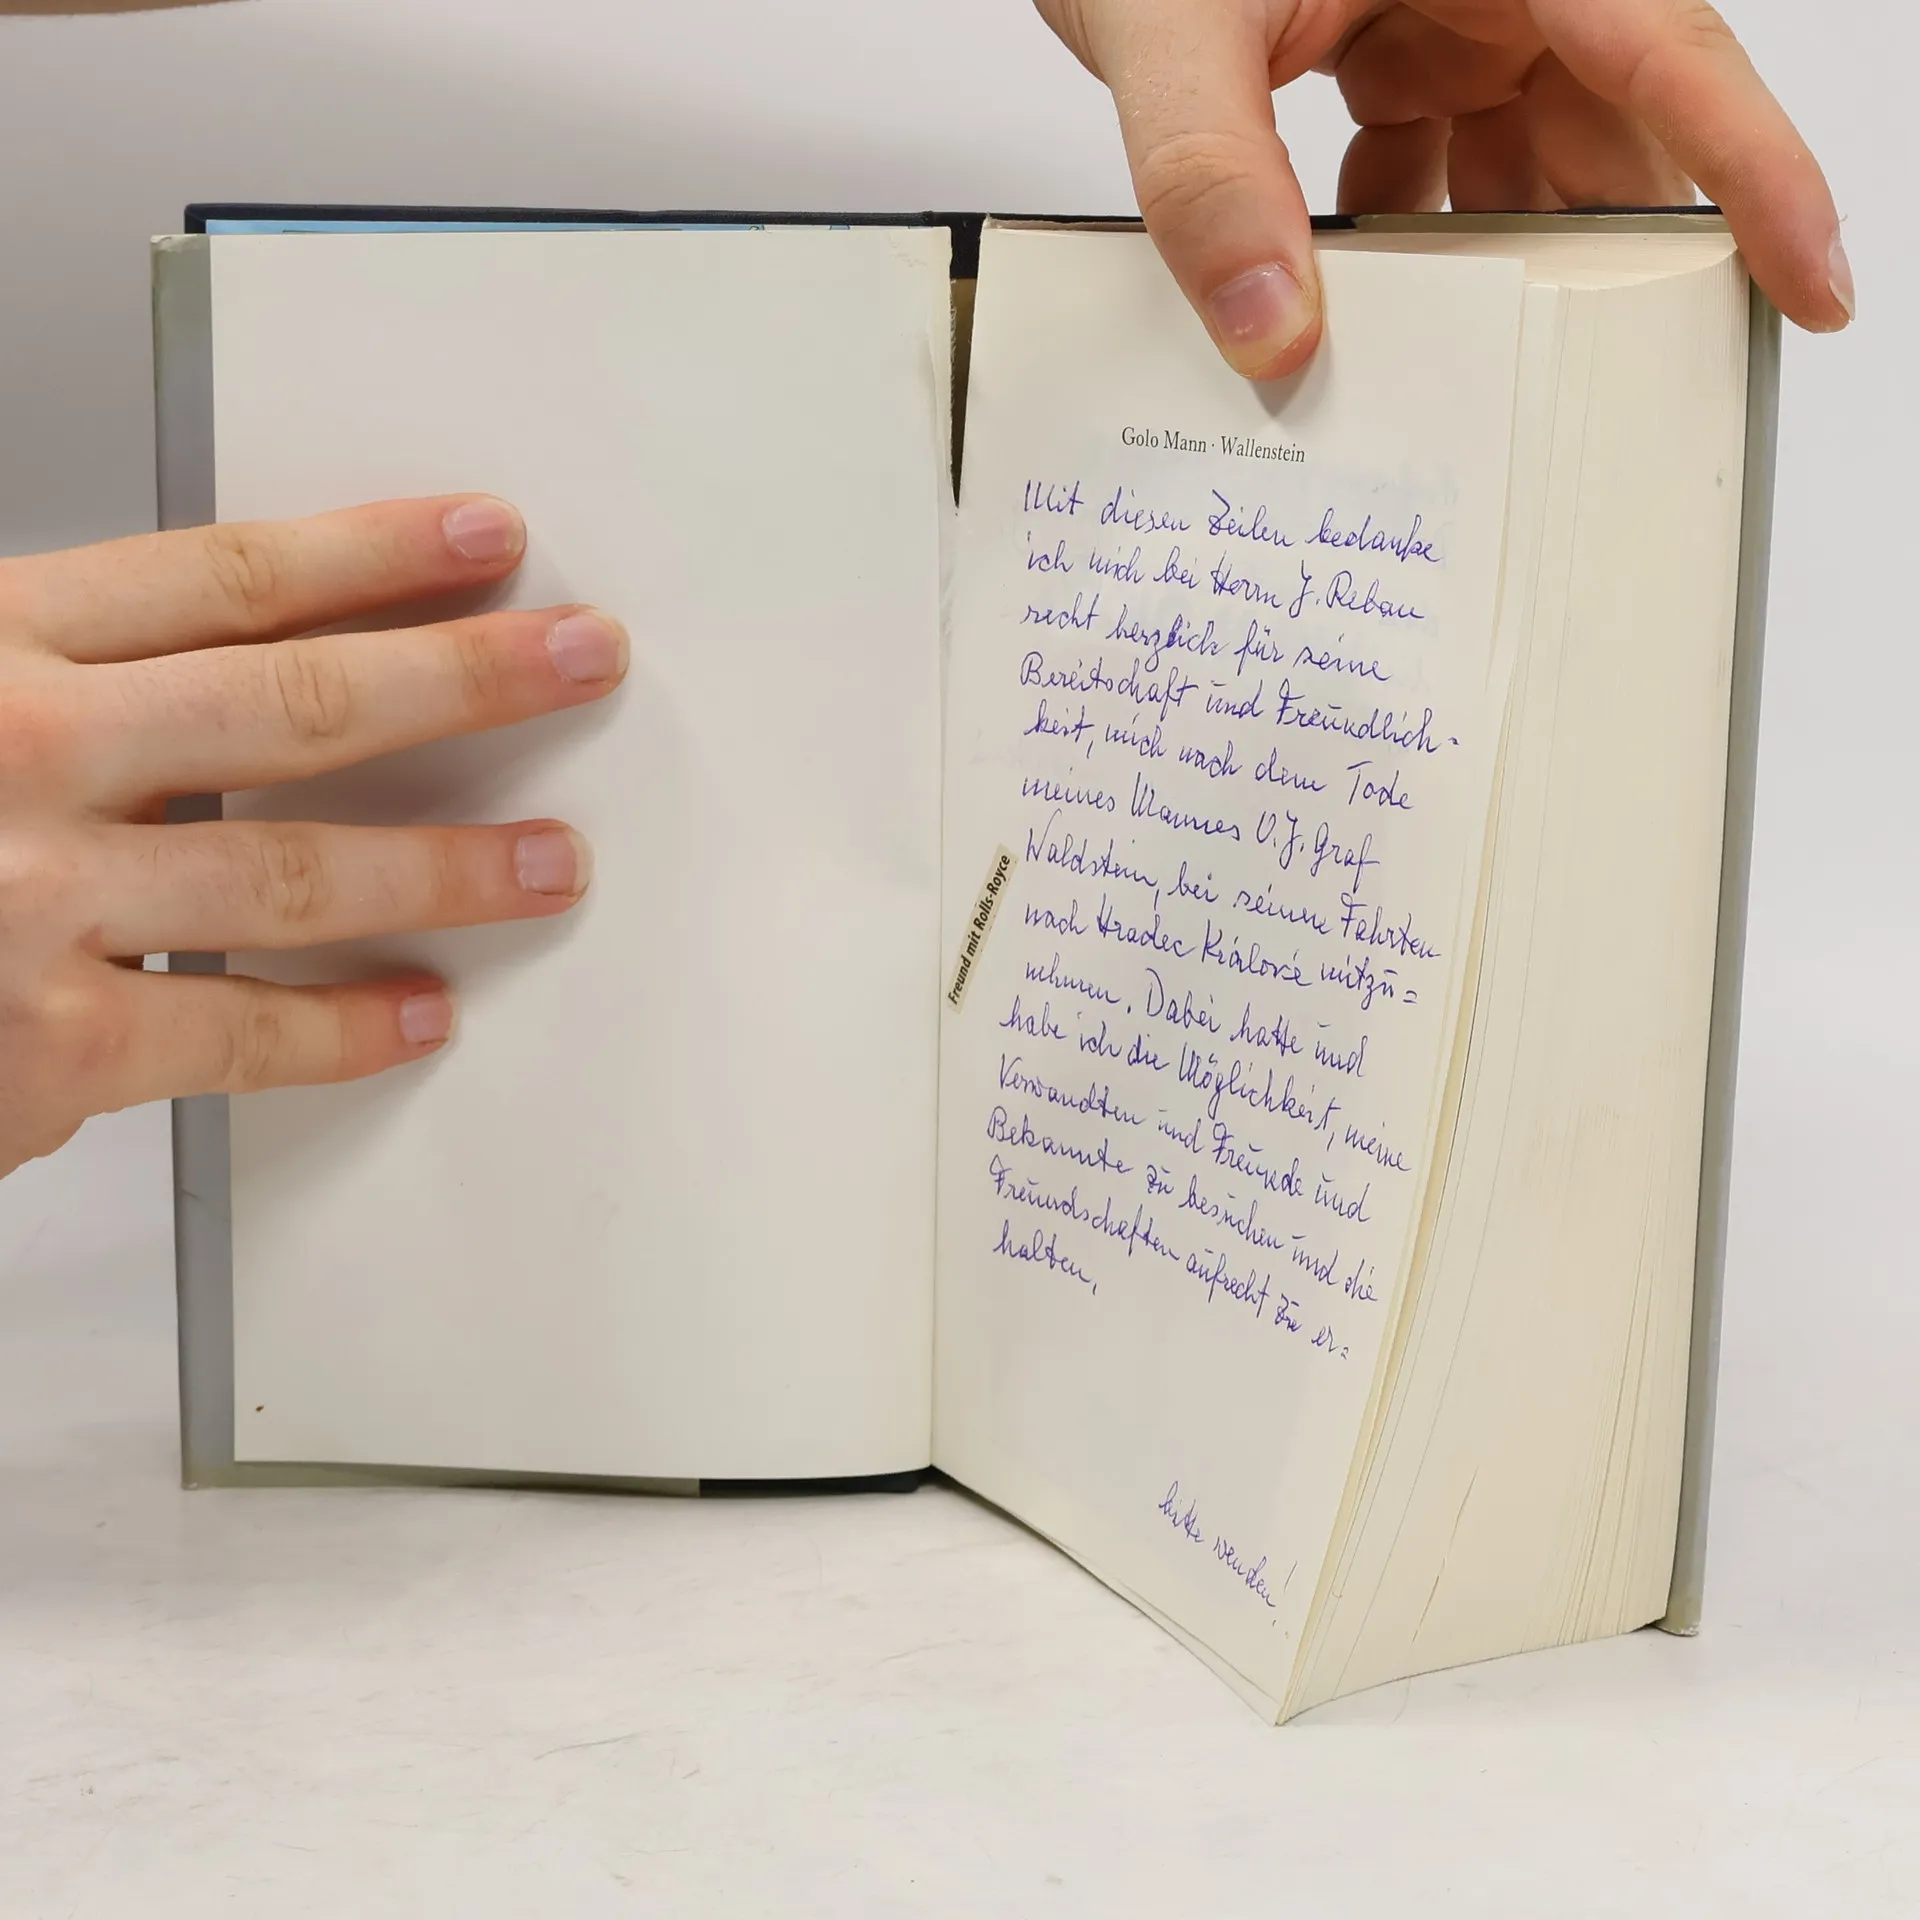 Golo Mann · Wallenstein
Mit diesen Zeilen bedanke
ich mich bei Herrn J. Rebau
recht herzlich für seine
Bereitschaft und Freundlich=
keit, mich nach dem Tode
meines Mannes V. J. Graf
Waldstein, bei seinen Fahrten
nach Hradec Králové mitzu=
nehmen. Dabei hatte und
habe ich die Möglichkeit, meine
Verwandten und Freunde und
Bekannte zu besuchen und die
Freundschaften aufrecht zu er=
halten.
bitte wenden!
Freund mit Rolls-Royce